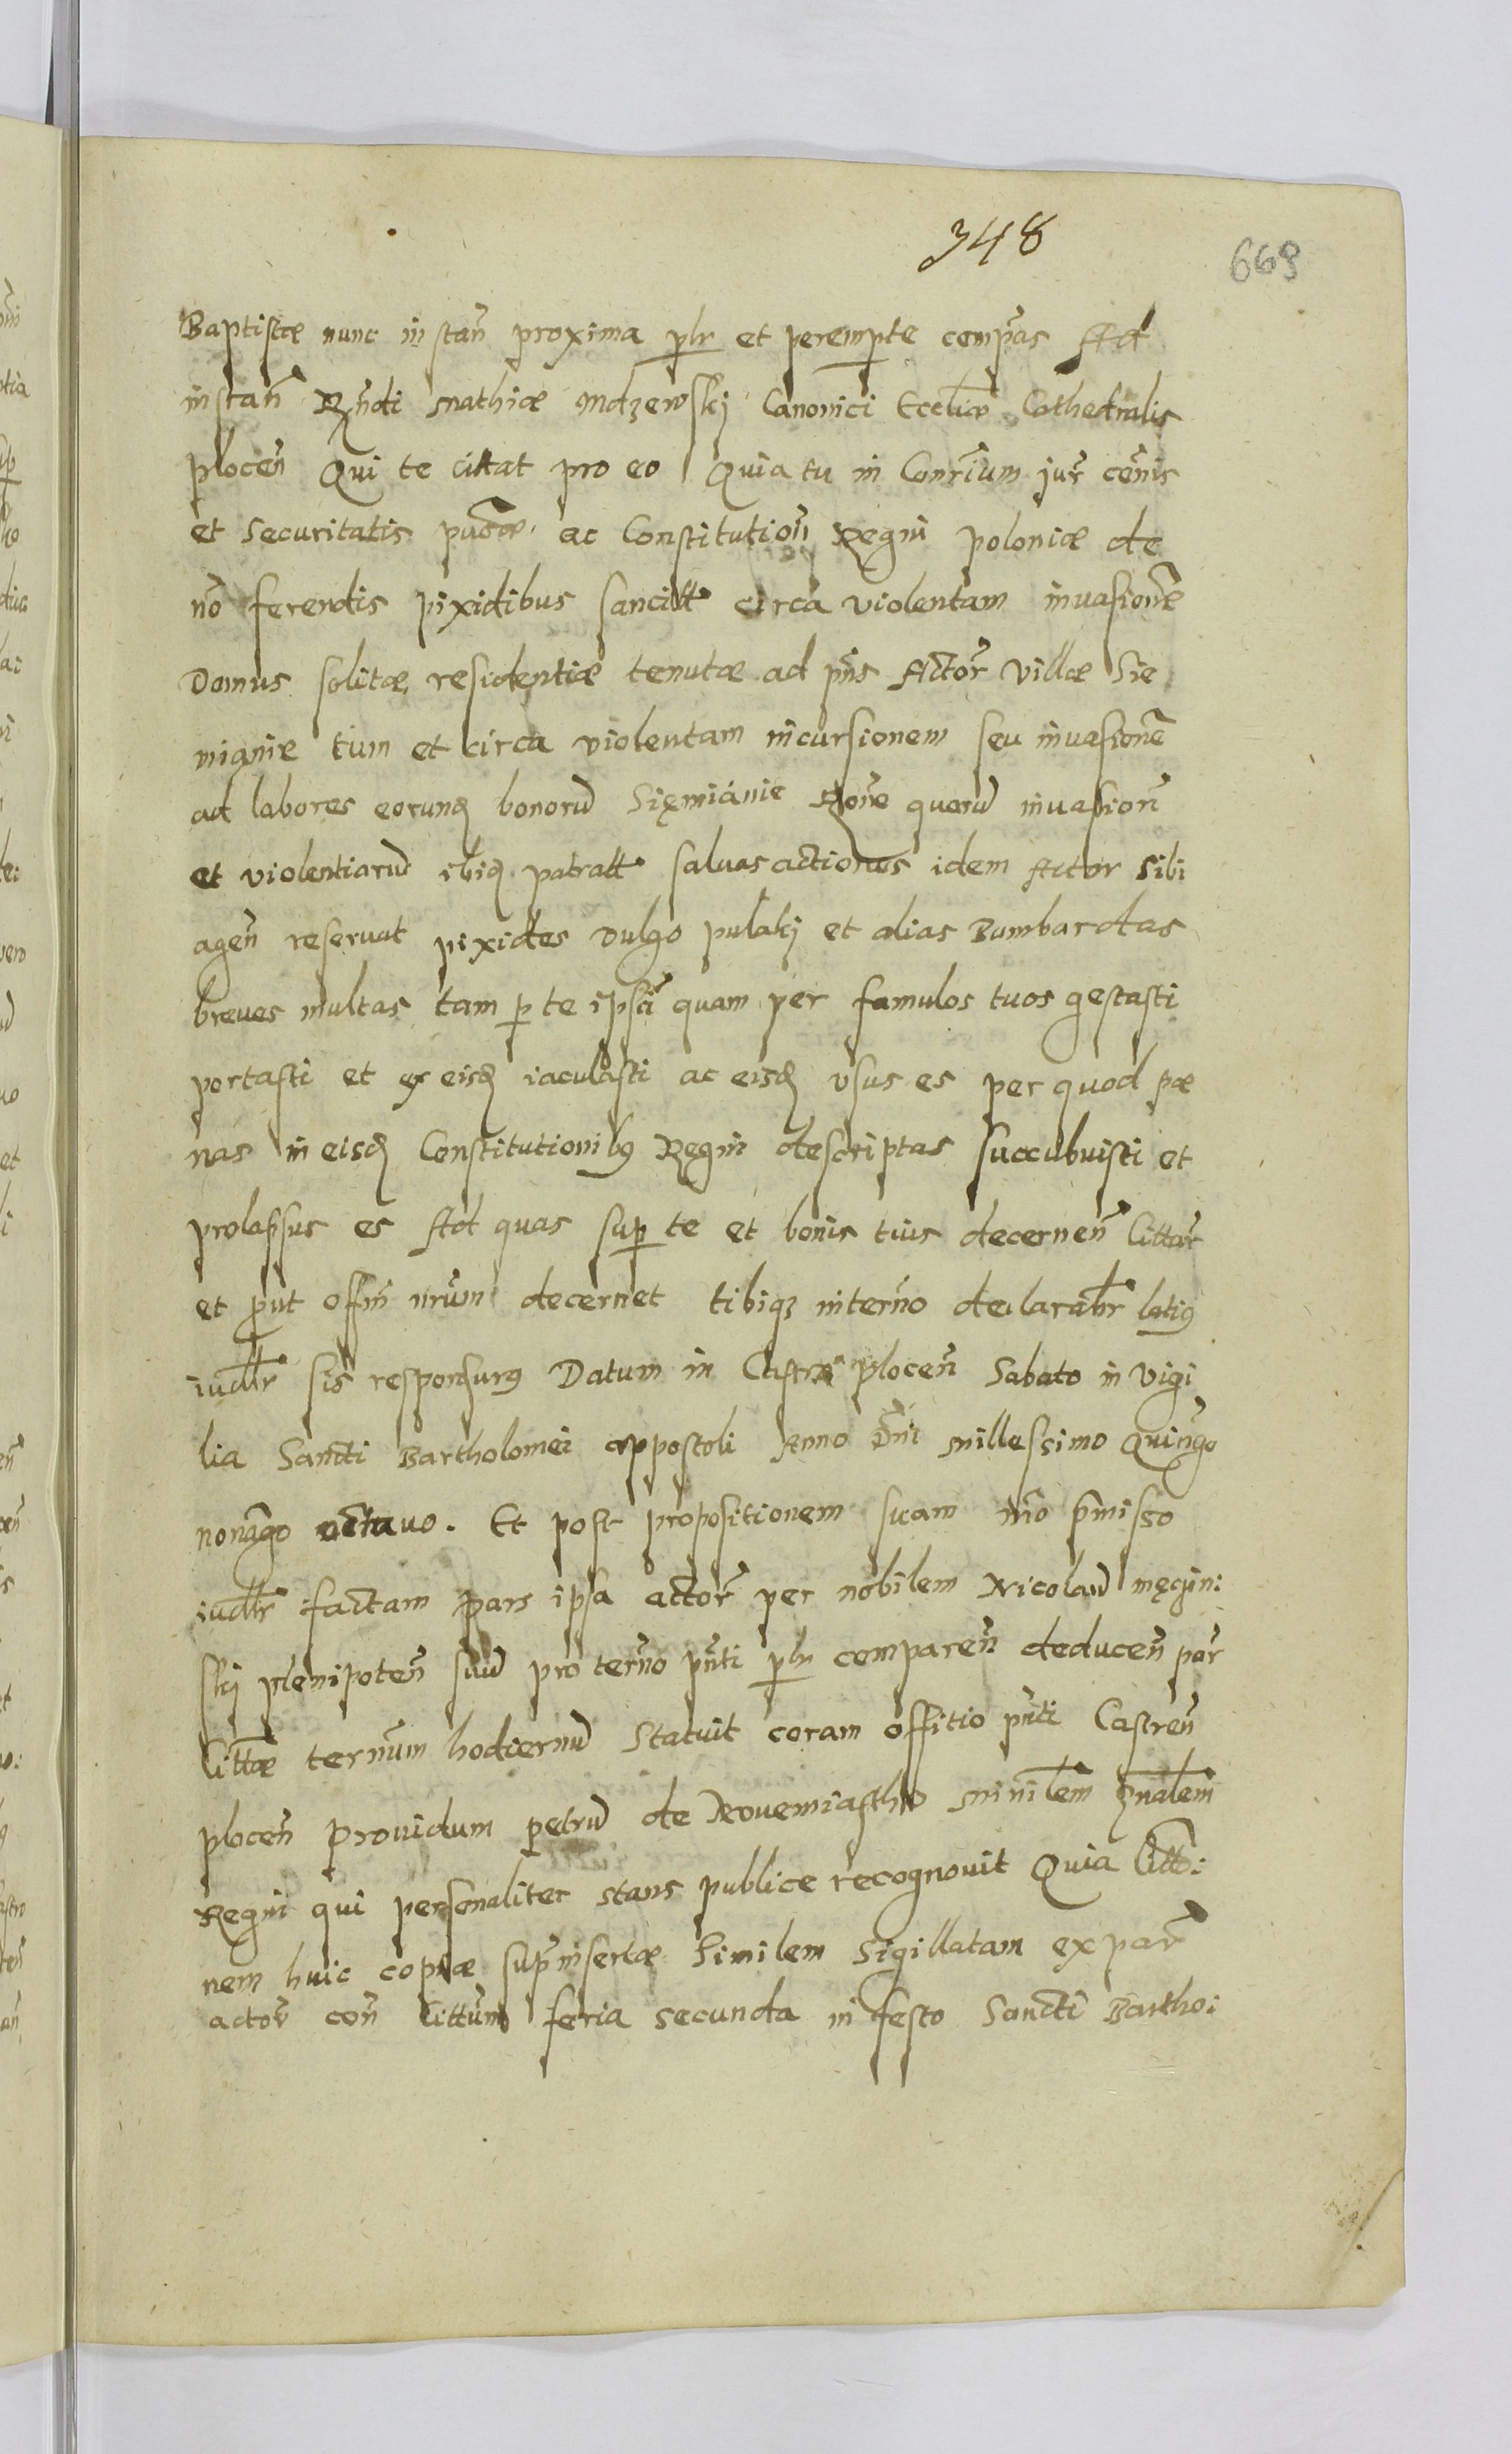 348
669
Baptistæ nunc in stan̄ proxima pŗlr et perempte compas Ad
instan̄ Rn̄di Mathiæ Mdzewskj Canonici Eccliæ Cathedralis
plocen̄ Qui te citat pro eo Quia tu in Conr̄ium jur̄ cēnis
et securitatis pucæ ac Constitution̄ Regni poloniæ de
nō ferendis pixidibus sancitt circa violentam invasionē
Domus solitæ residentiæ tenutæ ad pn̄s Actor̄ villæ Sie
mianie tum et circa violentam incursionem seu invasionē
ad labores eorund bonorū Sięmiánie quarū invasion̄
et violentiarū ibid patratt salvas actiones idem Actor sibi
agen̄ reservat pixides vulgo pulaki et alias Bombardas
breves multas tam p te ipsū quam per famulos tuos gestasti
portasti et ex eisd iaculasti ac eisd usus es per quod pæ
nas in eisd Constitutionib9 Regni descriptas succubuisti et
prolapsus es Ad quas sup te et bonis tuis decernen̄ cittar̄
et put offm̄ nr̄um decernet tibiq3 in tern̄o declarabr latiq
iudr̄ sis responsur9 Datum in Castro plocen̄ Sabato in vigi
lia Sancti Bartholomei appostoli Anno Dn̄i millessimo Quingo
nonago octavo. Et post propositionem suam mō pmisso
iudr̄ factam pars ipsa actor̄ per nobilem Nicolaū męcin:
skj plenipoten̄ suū pro tern̄o pn̄ti plr comparen̄ deducen̄ par̄
cittæ tern̄um hodiernū statuit coram offitio pn̄ti Castren̄
plocen̄ providum petrū de Novemiasthu minilem gnalem
Regni qui personaliter stans publice recognovit Quia citto:
nem huic copiæ sup insertæ similem sigillatam ex par̄
actor̄ con̄ cittūm feria secunda in festo Sancti Bartho: